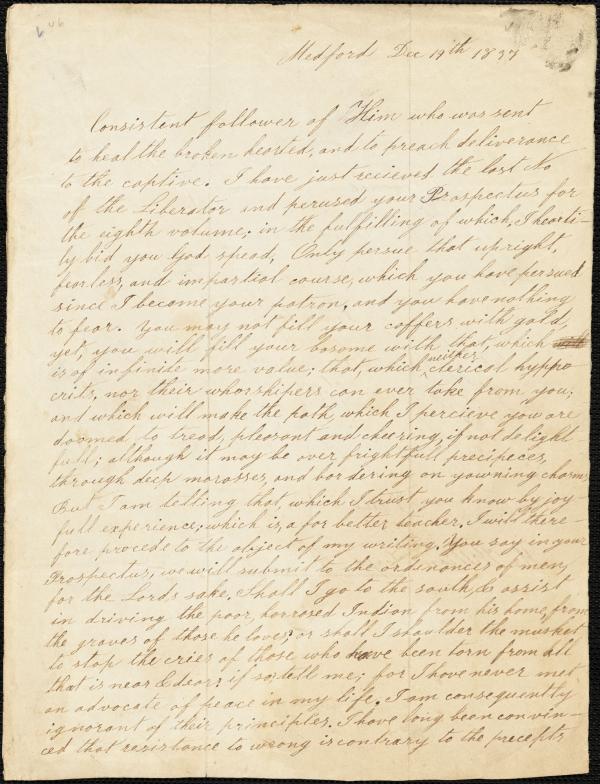 Medford Dec 19th 1837
Consistent follower of Him who was sent
to heal the broken hearted, and to preach deliverance
to the captive. I have just recieved the last No
of the Liberator and perused your Prospectus for
the eighth volume; in the fulfilling of which, I hearti-
ly bid you God spead, Only persue that upright,
fearless, and impartial course, which you have persued
since I become your patron, and you have nothing
to fear. You may not fill your coffers with gold,
yet, you will fill your bosome with that, which
is of infinite more value; that, which neither clerical hyppo
crits, nor their whorshipers can ever take from you;
and which will make the path which I percieve you are
doomed to tread, pleasant and cheering, if not delight-
full; although it may be over frightfull precipeces,
through deep morasses, and bordering on yawning chasms,
But I am telling that, which I trust you know by joy-
full experience; which is, a far better teacher. I will there-
fore procede to the object of my writing. You say in your
Prospectus, we will submit to the ordenances of men,
for the Lords sake. Shall I go to the south, & assist
in driving the poor, harrosed Indian from his home, from
the graves of those he loves? or shall I shoulder the musket,
to stop the cries of those who have been torn from all
that is near & dear? if so, tell me; for I have never met
an advocate of peace in my life. I am consequently
ignorant of their principles. I have long been convin-
ced that resistance to wrong is contrary to the precepts